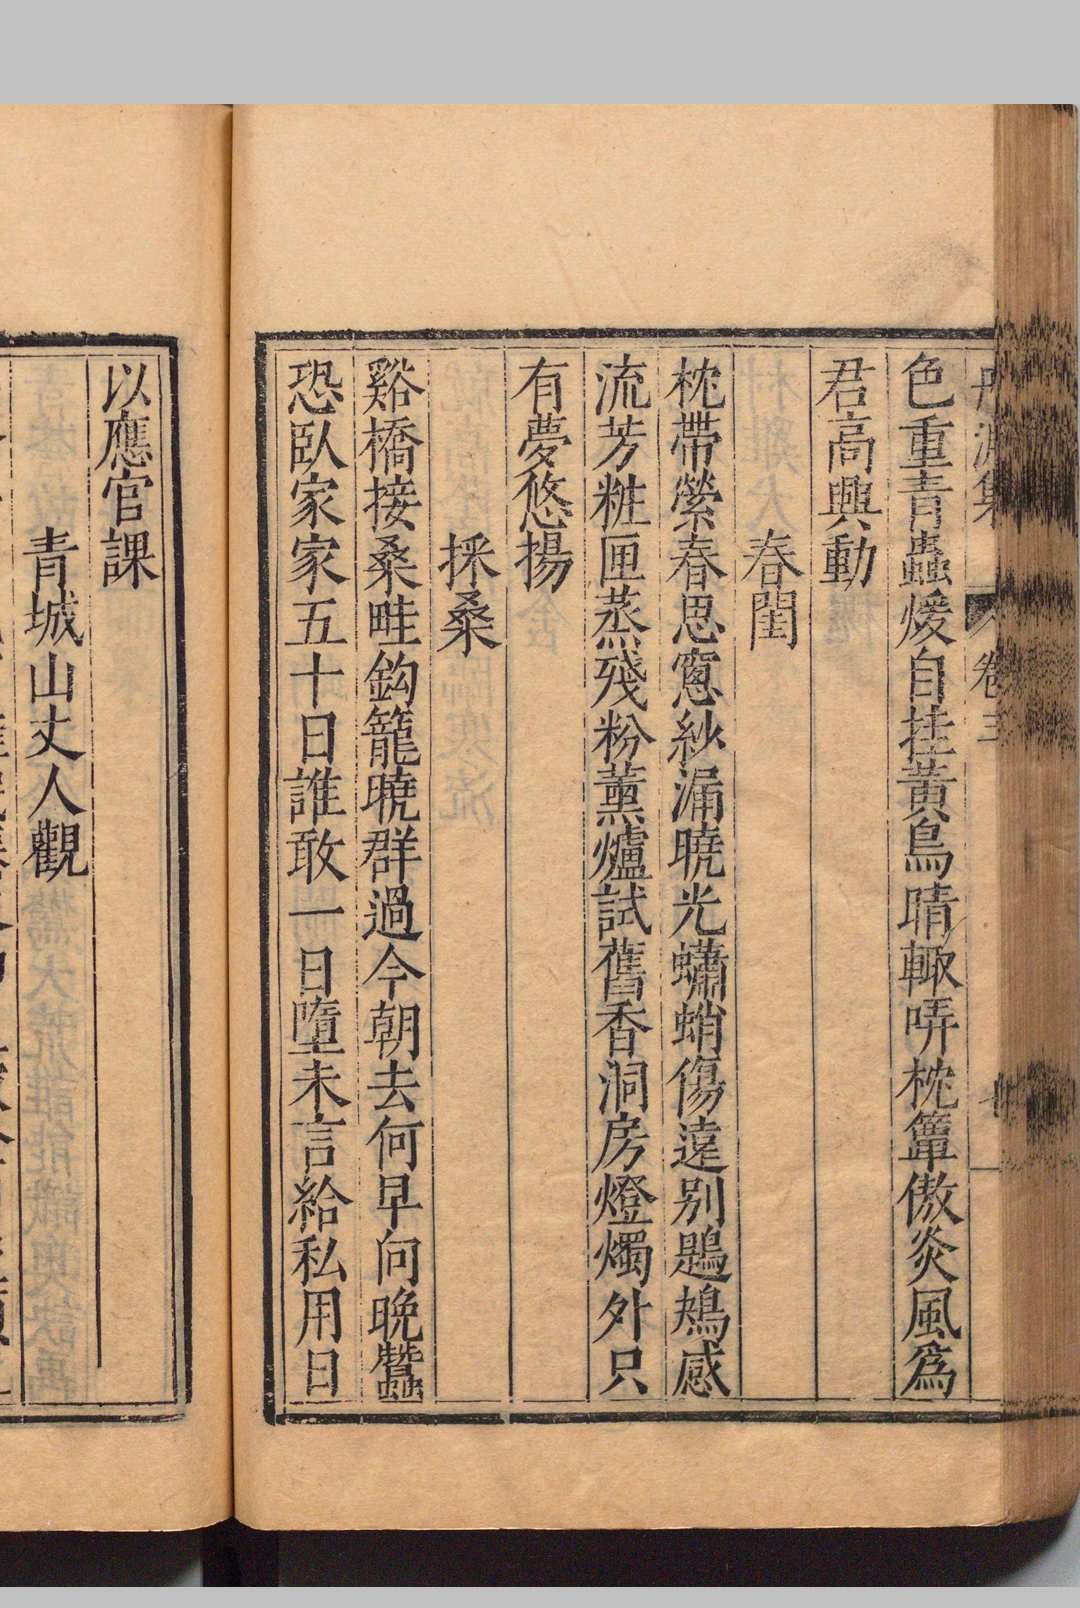 丹淵集 卷三
色重青蟲煖自挂黃鳥晴輙哢枕簟傲炎風爲
君高興動
春閨
枕帶縈春思窻紗漏曉光蠨蛸傷遠别鶗鴂感
流芳粧匣蒸殘粉薰爐試舊香洞房燈燭外只
有夢悠揚
採桑
谿橋接桑畦鈎籠曉群過今朝去何早向晚蠶
恐臥家家五十日誰敢一日墮未言給私用日
以應官課
青城山丈人觀